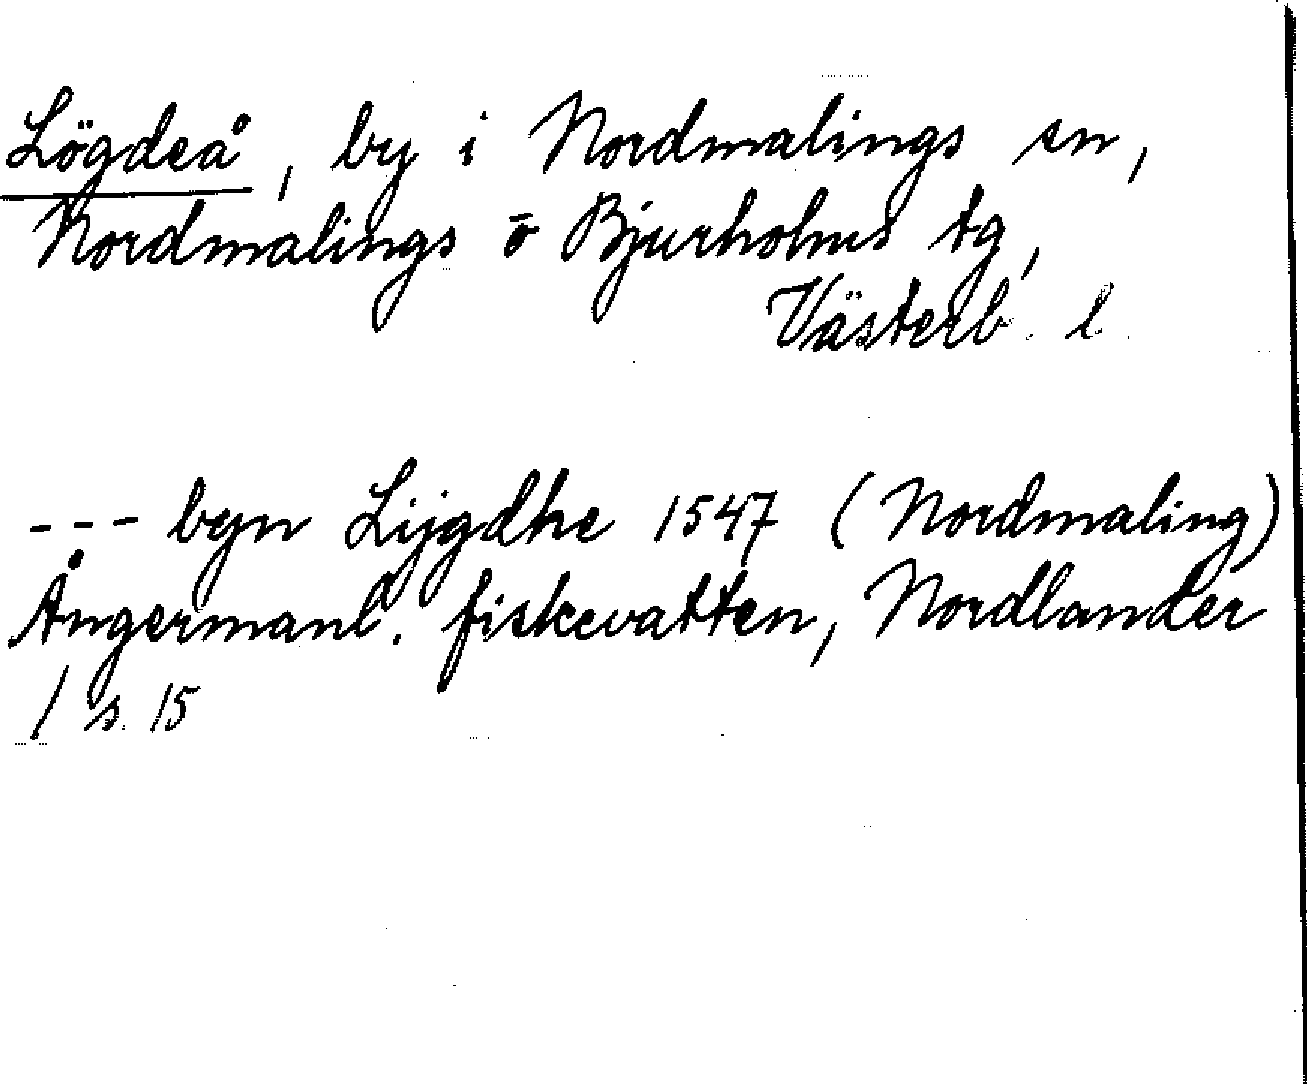 Lögdeå, by i Nordmalings sn,
Nordmalings o Bjurholms tg,
Västerb. l.
--- byn Lijgdhe 1547 (Nordmaling)
Ångermanl. fiskevatten, Nordlander
/ s. 15